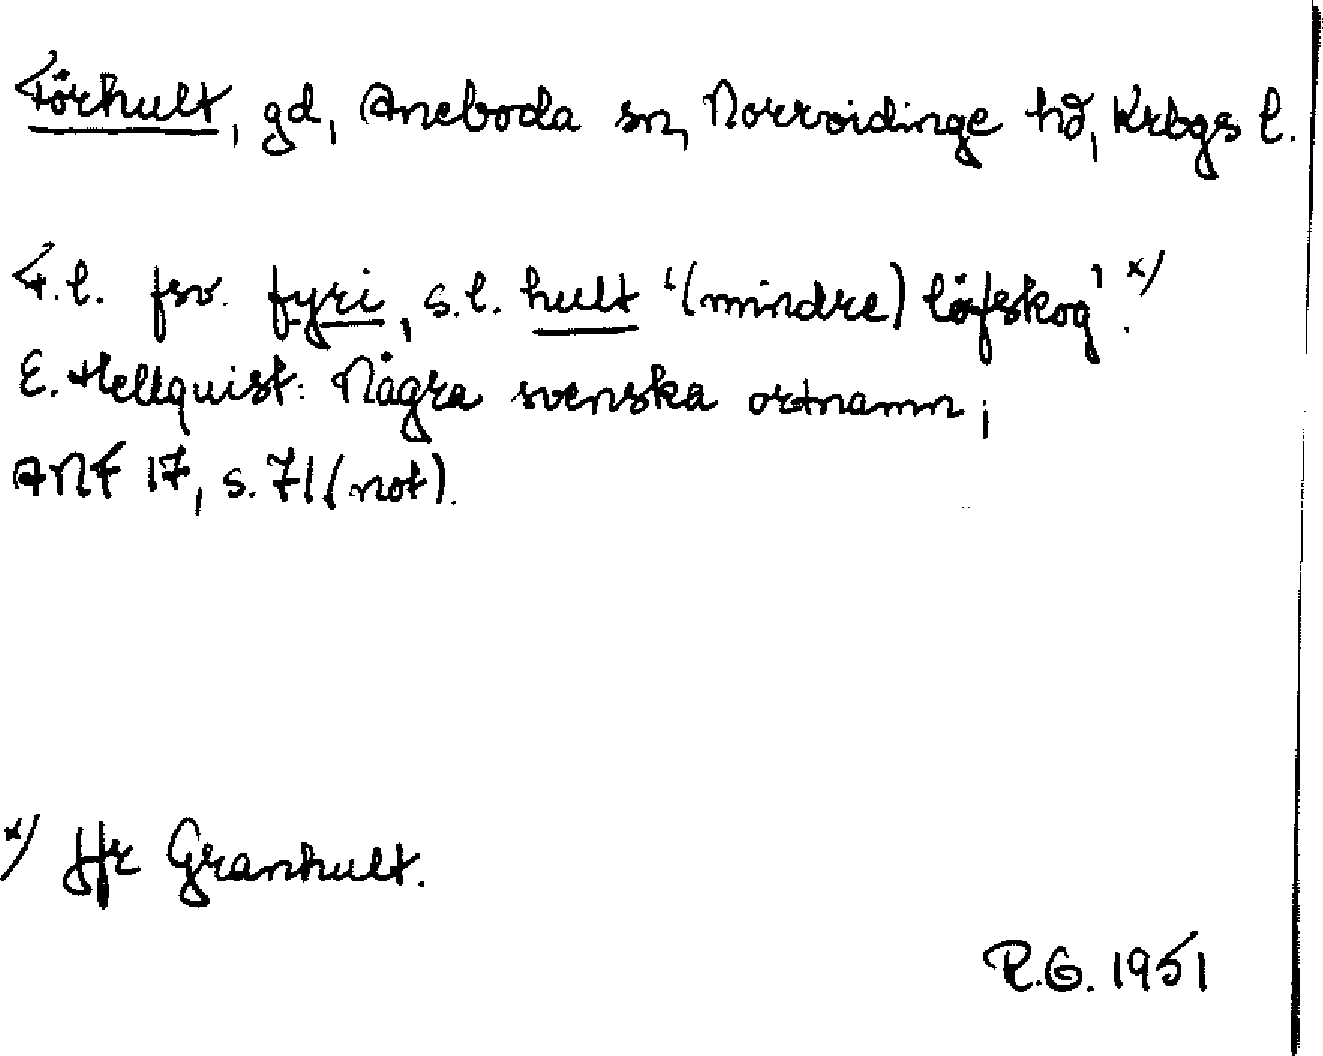 Förhult, gd, Aneboda sn, Norrvidinge hd, Krbgs l.
F.l. fsv. fyri, s.l. hult '(mindre) löfskog'. x)
E. Hellquist: Några svenska ortnamn;
ANF 17, s. 71 (not).
x) Jfr Granhult.
R.G. 1951